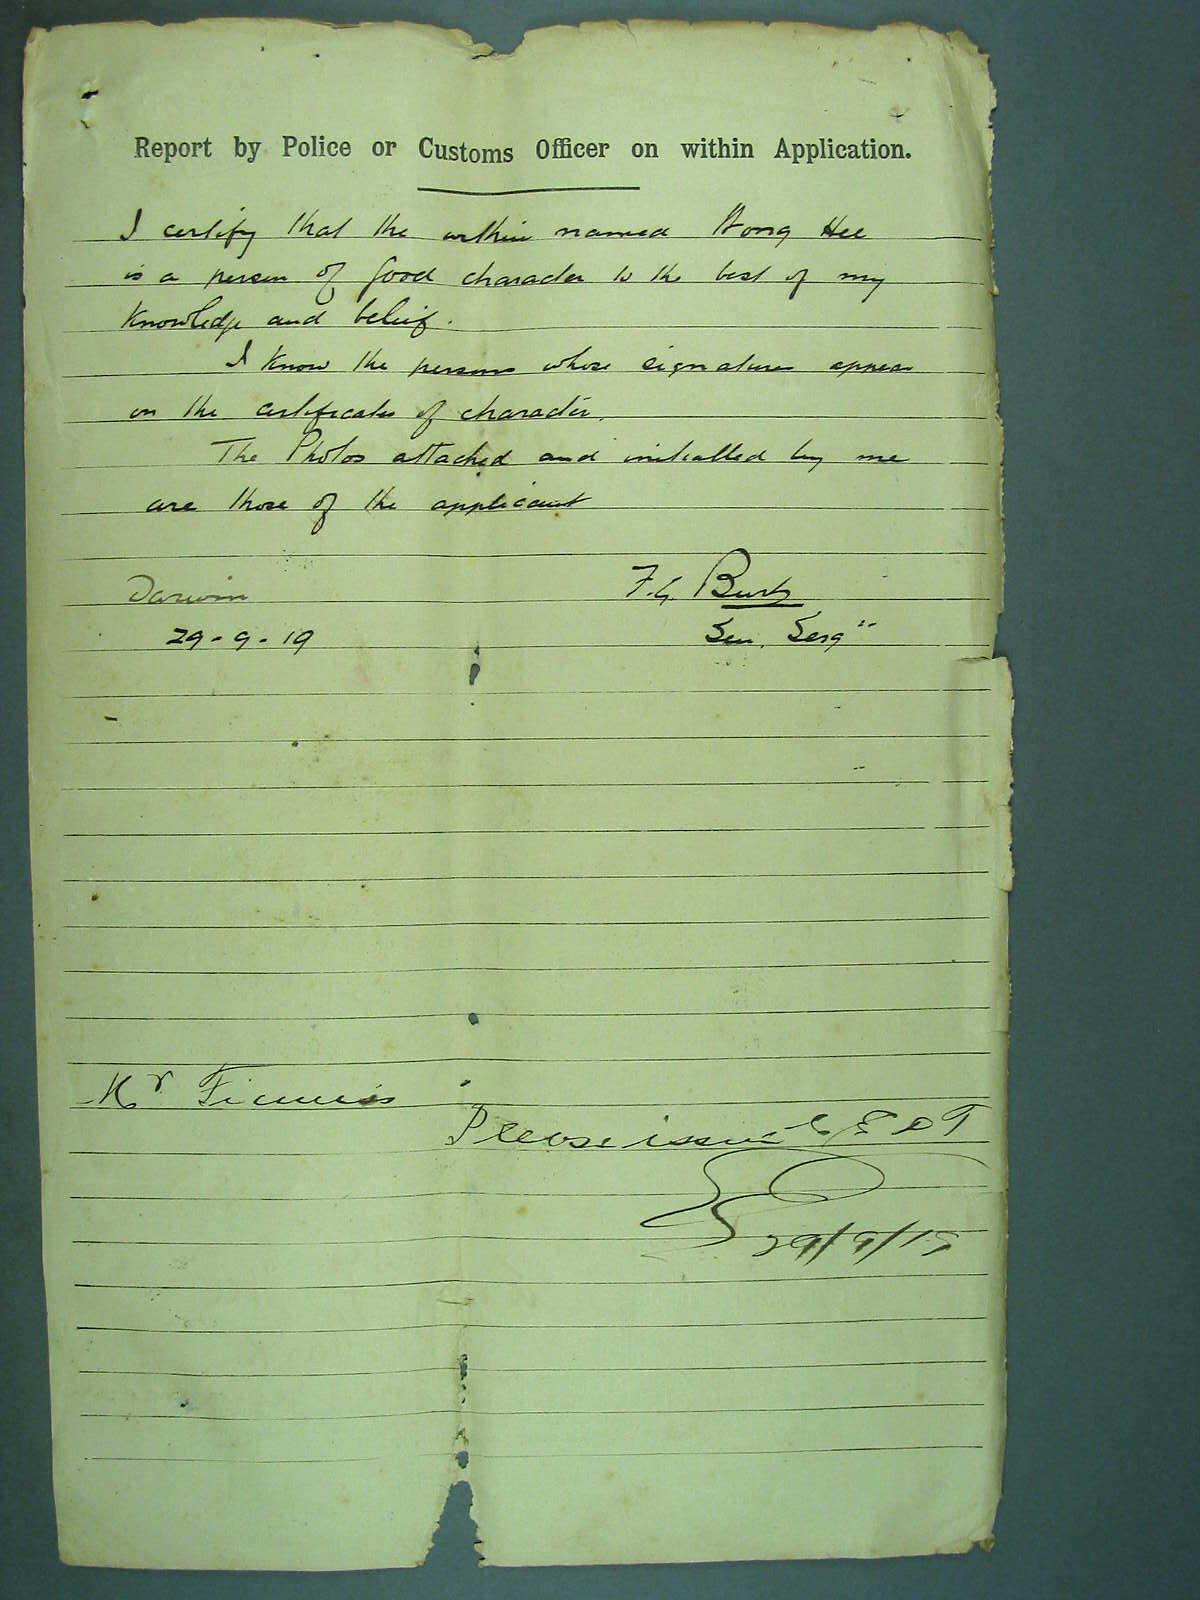 Report by Police or Customs Officer on within Application.
I certify that the within named Wong Hee
is a person of good character to the best of my
knowledge and belief.
I know the persons whose signatures appear
on the certificates of character.
The Photos attached and initialled by me
are those of the applicant
Darwin
F.G. Burt
29-9-19
Sen. Serg
Mr
Please issue C E D T
29/9/19